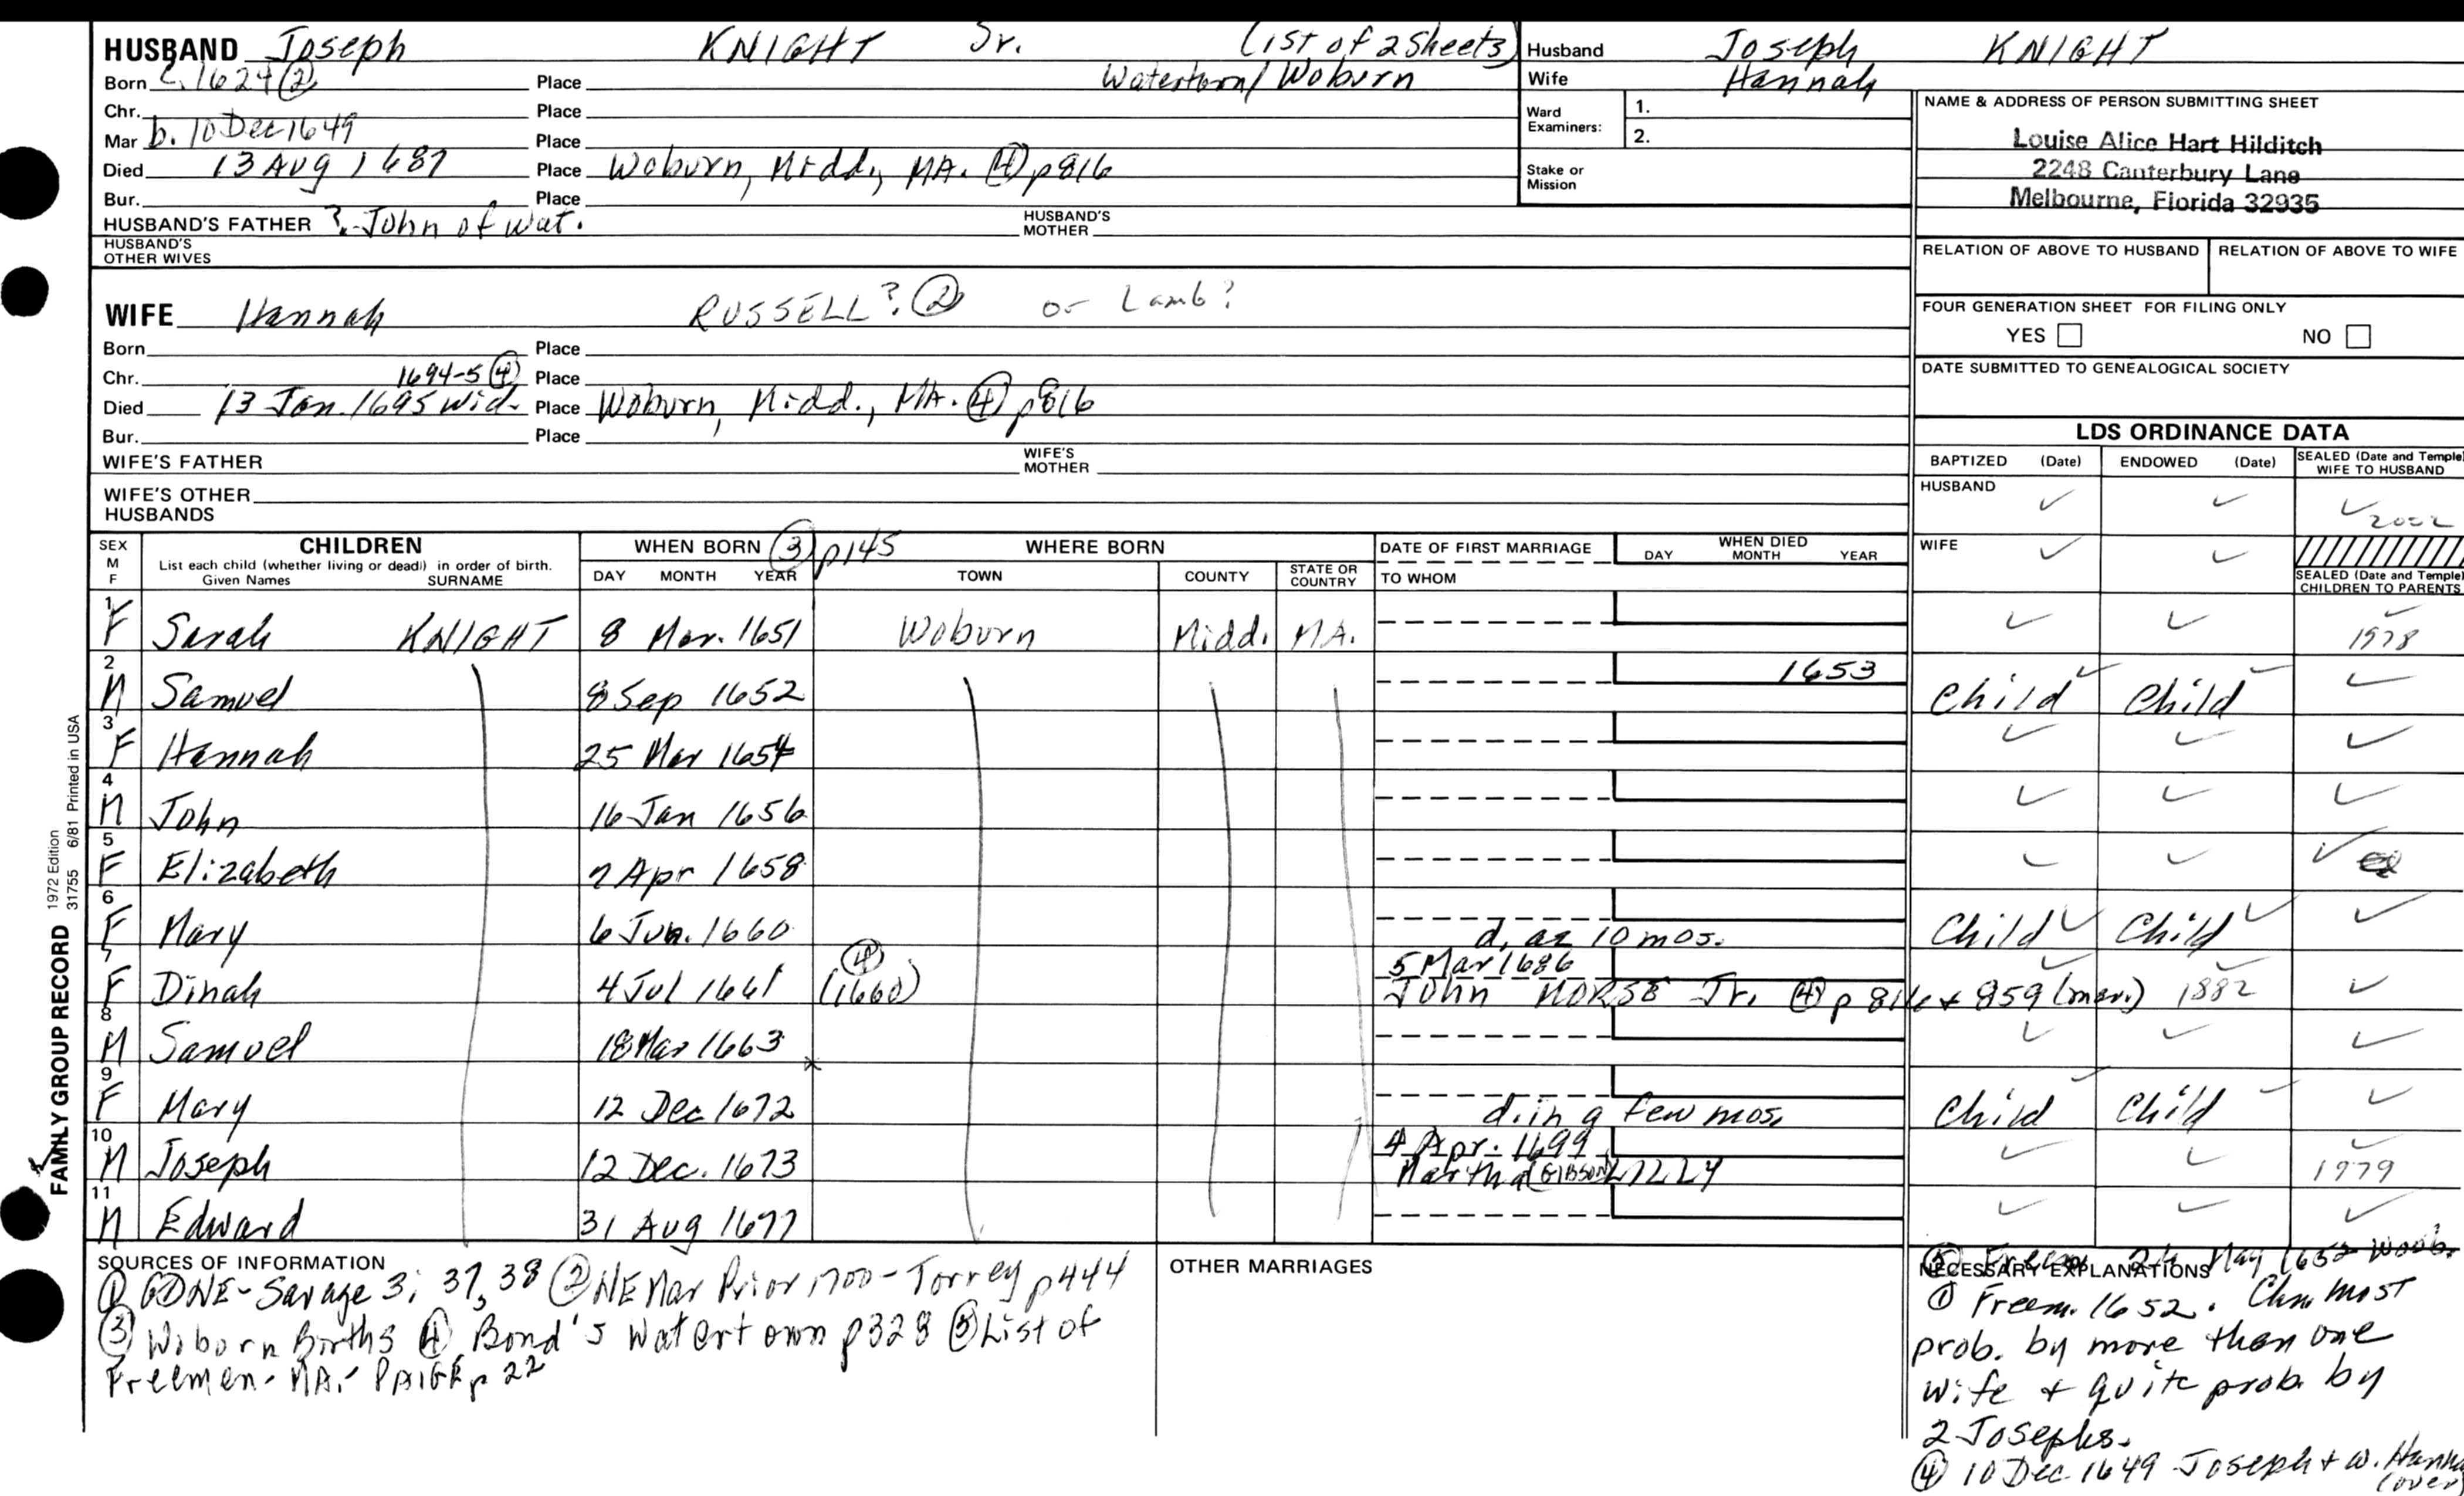 HUSBAND Joseph KNIGHT Sr. (1st of 2 sheets)
Born c. 1624 (2) Place Watertown/Woburn
Chr. Place
Mar b. 10 Dec 1649 Place
Died 13 Aug 1687 Place Woburn, Midd., MA. (4) p 816
Bur. Place
HUSBAND'S FATHER ? John of Wat. HUSBAND'S MOTHER
HUSBAND'S OTHER WIVES
WIFE Hannah RUSSELL? (2) or Lamb?
Born Place
Chr. 1694-5 (4) Place
Died 13 Jan. 1695 wid. Place Woburn, Midd., MA. (4) p816
Bur. Place
WIFE'S FATHER WIFE'S MOTHER
WIFE'S OTHER HUSBANDS
Husband Joseph KNIGHT
Wife Hannah
Ward Examiners: 1.
2.
Stake or Mission
NAME & ADDRESS OF PERSON SUBMITTING SHEET
Louise Alice Hart Hilditch
2248 Canterbury Lane
Melbourne, Florida 32935
RELATION OF ABOVE TO HUSBAND RELATION OF ABOVE TO WIFE
FOUR GENERATION SHEET FOR FILING ONLY
YES NO
DATE SUBMITTED TO GENEALOGICAL SOCIETY
LDS ORDINANCE DATA
BAPTIZED (Date) ENDOWED (Date) SEALED (Date and Temple) WIFE TO HUSBAND
HUSBAND ✓ ✓ ✓ 2002
WIFE ✓ ✓
SEALED (Date and Temple) CHILDREN TO PARENTS
SEX M F CHILDREN WHEN BORN (3) p145 WHERE BORN DATE OF FIRST MARRIAGE WHEN DIED
List each child (whether living or dead) in order of birth.
Given Names SURNAME DAY MONTH YEAR TOWN COUNTY STATE OR COUNTRY TO WHOM DAY MONTH YEAR
1 F Sarah KNIGHT 8 Mar. 1651 Woburn Midd. MA. ✓ ✓ ✓ 1978
2 M Samuel 8 Sep 1652 1653 Child ✓ Child ✓ ✓
3 F Hannah 25 Mar 1654 ✓ ✓ ✓
4 M John 16 Jan 1656 ✓ ✓ ✓
5 F Elizabeth 7 Apr 1658 ✓ ✓ ✓
6 F Mary 6 Jun. 1660 d. ae 10 mos. Child ✓ Child ✓ ✓
7 F Dinah 4 Jul 1661 (4) (1660) 5 Mar 1686 John MORSE Jr. (4) p 816 + 859 (mar.) ✓ ✓ 1882 ✓
8 M Samuel 18 Mar 1663 ✓ ✓ ✓
9 F Mary 12 Dec 1672 d. in a few mos. Child ✓ Child ✓ ✓
10 M Joseph 12 Dec. 1673 4 Apr. 1699 Martha (GIBSON) LILLY ✓ ✓ ✓ 1979
11 M Edward 31 Aug 1677 ✓ ✓ ✓
SOURCES OF INFORMATION
(1) GDNE-Savage 3; 37, 38 (2) NE Mar Prior 1700-Torrey p444
(3) Woborn Births (4) Bond's Watertown p328 (5) List of
Freemen-MA.- PAIGE p 22
OTHER MARRIAGES
(5) Freem 26 May 1652 Woob.
NECESSARY EXPLANATIONS
(1) Freem. 1652. Chn. most
prob. by more than one
wife + quite prob. by
2 Josephs.
(4) 10 Dec 1649 Joseph + w. Hanna
(over
FAMILY GROUP RECORD 1972 Edition
31755 6/81 Printed in USA